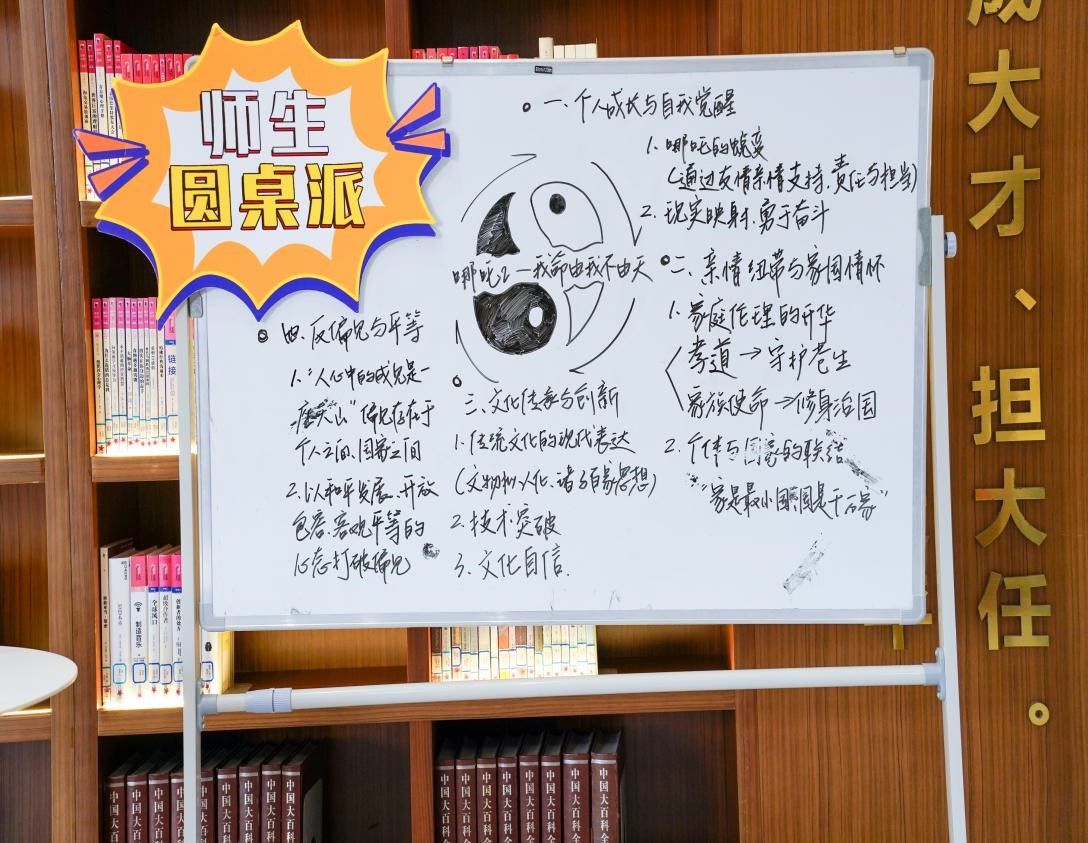 师生
圆桌派
一、个人成长与自我觉醒
1. 哪吒的蜕变
(通过友情亲情支持、责任与担当)
2. 现实映射、勇于奋斗
哪吒2—我命由我不由天
二、亲情纽带与家国情怀
1. 家庭伦理的升华
孝道→守护苍生
家族使命→修身治国
2. 个体与国家的联结
“家是最小国国是千万家”
三、文化传承与创新
1. 传统文化的现代表达
(文物拟人化、诸子百家思想)
2. 技术突破
3. 文化自信.
四、反偏见与平等
1. “人心中的成见是一
座大山”偏见存在于
个人之间、国家之间
2. 以和平发展、开放
包容、客观平等的
心态打破偏见
成大才、担大任。
链接
制造音乐
全球风口
中国大百科全
中国大百科全
中国大百科全
中国大百科全
中国大百科全
中国大百科全
中国大百科全